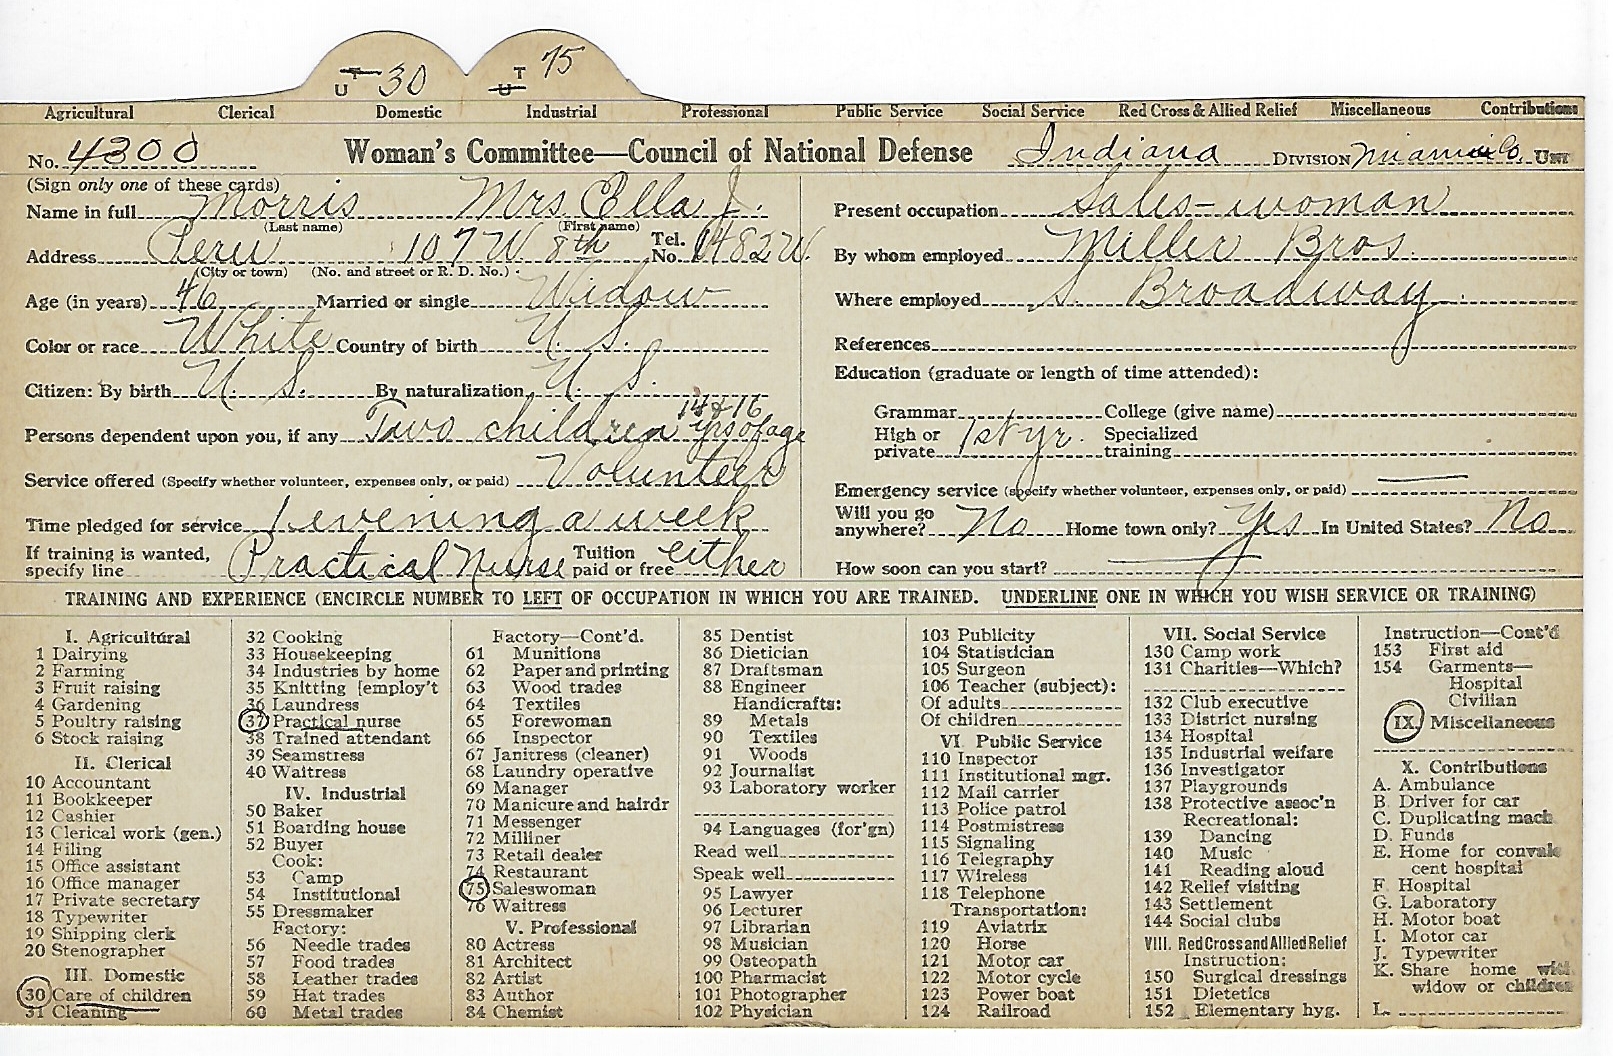 U T 30 T U 75
Agricultural Clerical Domestic Industrial Professional Public Service Social Service Red Cross & Allied Relief Miscellaneous Contributions
No. 4300 Woman's Committee—Council of National Defense Indiana DIVISION Miami Co. UNIT
(Sign only one of these cards)
Name in full Morris Mrs. Ella J.
(Last name) (First name)
Address Peru 107 W. 8th Tel. No. 1482W.
(City or town) (No. and street or R. D. No.)
Age (in years) 46 Married or single Widow
Color or race White Country of birth U. S.
Citizen: By birth U. S. By naturalization U. S.
Persons dependent upon you, if any Two children 14 & 16 yrs of age
Service offered (Specify whether volunteer, expenses only, or paid) Volunteer
Time pledged for service 1 evening a week
If training is wanted, specify line Practical Nurse Tuition paid or free either
Present occupation Sales-woman
By whom employed Miller Bros.
Where employed S. Broadway
References
Education (graduate or length of time attended):
Grammar College (give name)
High or private 1st yr. Specialized training
Emergency service (specify whether volunteer, expenses only, or paid) —
Will you go anywhere? No Home town only? Yes In United States? No
How soon can you start? —
TRAINING AND EXPERIENCE (ENCIRCLE NUMBER TO LEFT OF OCCUPATION IN WHICH YOU ARE TRAINED. UNDERLINE ONE IN WHICH YOU WISH SERVICE OR TRAINING)
I. Agricultural
1 Dairying
2 Farming
3 Fruit raising
4 Gardening
5 Poultry raising
6 Stock raising
II. Clerical
10 Accountant
11 Bookkeeper
12 Cashier
13 Clerical work (gen.)
14 Filing
15 Office assistant
16 Office manager
17 Private secretary
18 Typewriter
19 Shipping clerk
20 Stenographer
III. Domestic
30 Care of children
31 Cleaning
32 Cooking
33 Housekeeping
34 Industries by home
35 Knitting [employ't
36 Laundress
37 Practical nurse
38 Trained attendant
39 Seamstress
40 Waitress
IV. Industrial
50 Baker
51 Boarding house
52 Buyer
Cook:
53 Camp
54 Institutional
55 Dressmaker
Factory:
56 Needle trades
57 Food trades
58 Leather trades
59 Hat trades
60 Metal trades
Factory—Cont'd.
61 Munitions
62 Paper and printing
63 Wood trades
64 Textiles
65 Forewoman
66 Inspector
67 Janitress (cleaner)
68 Laundry operative
69 Manager
70 Manicure and hairdr
71 Messenger
72 Milliner
73 Retail dealer
74 Restaurant
75 Saleswoman
76 Waitress
V. Professional
80 Actress
81 Architect
82 Artist
83 Author
84 Chemist
85 Dentist
86 Dietician
87 Draftsman
88 Engineer
Handicrafts:
89 Metals
90 Textiles
91 Woods
92 Journalist
93 Laboratory worker
94 Languages (for'gn)
Read well
Speak well
95 Lawyer
96 Lecturer
97 Librarian
98 Musician
99 Osteopath
100 Pharmacist
101 Photographer
102 Physician
103 Publicity
104 Statistician
105 Surgeon
106 Teacher (subject):
Of adults
Of children
VI. Public Service
110 Inspector
111 Institutional mgr.
112 Mail carrier
113 Police patrol
114 Postmistress
115 Signaling
116 Telegraphy
117 Wireless
118 Telephone
Transportation:
119 Aviatrix
120 Horse
121 Motor car
122 Motor cycle
123 Power boat
124 Railroad
VII. Social Service
130 Camp work
131 Charities—Which?
132 Club executive
133 District nursing
134 Hospital
135 Industrial welfare
136 Investigator
137 Playgrounds
138 Protective assoc'n
Recreational:
139 Dancing
140 Music
141 Reading aloud
142 Relief visiting
143 Settlement
144 Social clubs
VIII. Red Cross and Allied Relief
Instruction:
150 Surgical dressings
151 Dietetics
152 Elementary hyg.
Instruction—Cont'd
153 First aid
154 Garments—
Hospital
Civilian
IX. Miscellaneous
X. Contributions
A. Ambulance
B. Driver for car
C. Duplicating mach
D. Funds
E. Home for convales
cent hospital
F. Hospital
G. Laboratory
H. Motor boat
I. Motor car
J. Typewriter
K. Share home with
widow or children
L.